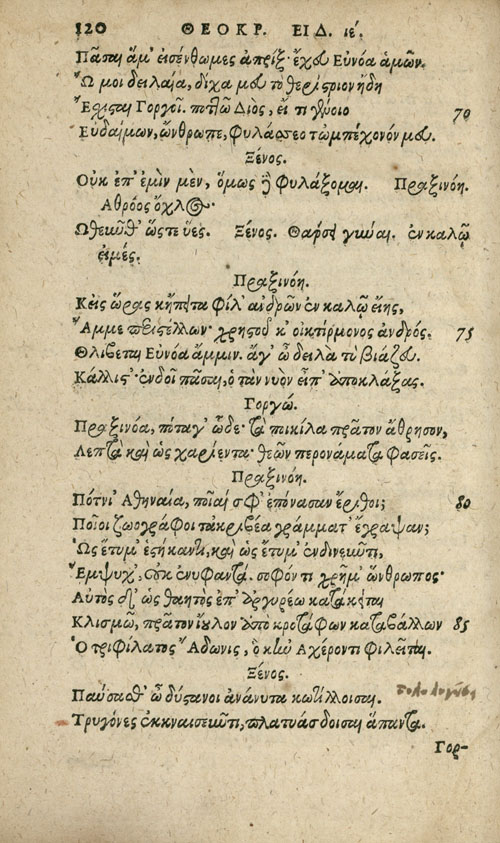 120 ΘΕΟΚΡ. ΕΙΔ. ιέ.
Πᾶσαι ἅμ' εἰσένθωμες ἀπρὶξ ἔχευ Εὐνόα ἁμῶν.
Ὤ μοι δειλαία, δίχα μευ τὸ θερίστριον ἤδη
Ἔσχισται Γοργοῖ. ποττῶ Διὸς, εἴ τι γένοιο 70
Εὐδαίμων, ὤνθρωπε, φυλάσσεο τὠμπέχονόν μευ.
Ξένος.
Οὐκ ἐπ' ἐμὶν μὲν, ὅμως ἢ φυλάξομαι. Πραξινόη.
Ἀθρόος ὄχλος·
Ὠθεῦνθ' ὥστε ὕες. Ξένος. Θάρσει γύναι. ἐν καλῷ
εἰμές.
Πραξινόη.
Κεἰς ὥρας κἤπειτα φίλ' ἀνδρῶν ἐν καλῷ εἴης,
Ἄμμε περιστέλλων· χρηστοῦ κ' οἰκτίρμονος ἀνδρός. 75
Θλίβεται Εὐνόα ἄμμιν. ἄγ' ὦ δειλὰ τὺ βιάζευ.
Κάλλιστ'· ἔνδοι πᾶσαι, ὁ τὰν νυὸν εἶπ' ἀποκλάξας.
Γοργώ.
Πραξινόα, πόταγ' ὧδε· τὰ ποικίλα πρᾶτον ἄθρησον,
Λεπτὰ καὶ ὡς χαρίεντα· θεῶν περονάματα φασεῖς.
Πραξινόη.
Πότνι' Ἀθηναία, ποῖαί σφ' ἐπόνασαν ἔριθοι; 80
Ποῖοι ζωογράφοι τἀκριβέα γράμματ' ἔγραψαν;
Ὡς ἔτυμ' ἑστήκαντι, καὶ ὡς ἔτυμ' ἐνδινεῦντι,
Ἔμψυχ', οὐκ ἐνυφαντά. σοφόν τι χρῆμ' ὤνθρωπος·
Αὐτὸς δ' ὡς θαητὸς ἐπ' ἀργυρέω κατάκειται
Κλισμῶ, πρᾶτον ἴουλον ἀπὸ κροτάφων καταβάλλων 85
Ὁ τριφίλατος Ἄδωνις, ὃ κἠν Ἀχέροντι φιλεῖται.
Ξένος.
Παύσασθ' ὦ δύστανοι ἀνάνυτα κωτίλλοισαι.
Τρυγόνες ἐκκναισεῦντι, πλατυάσδοισαι ἅπαντα.
Γορ-